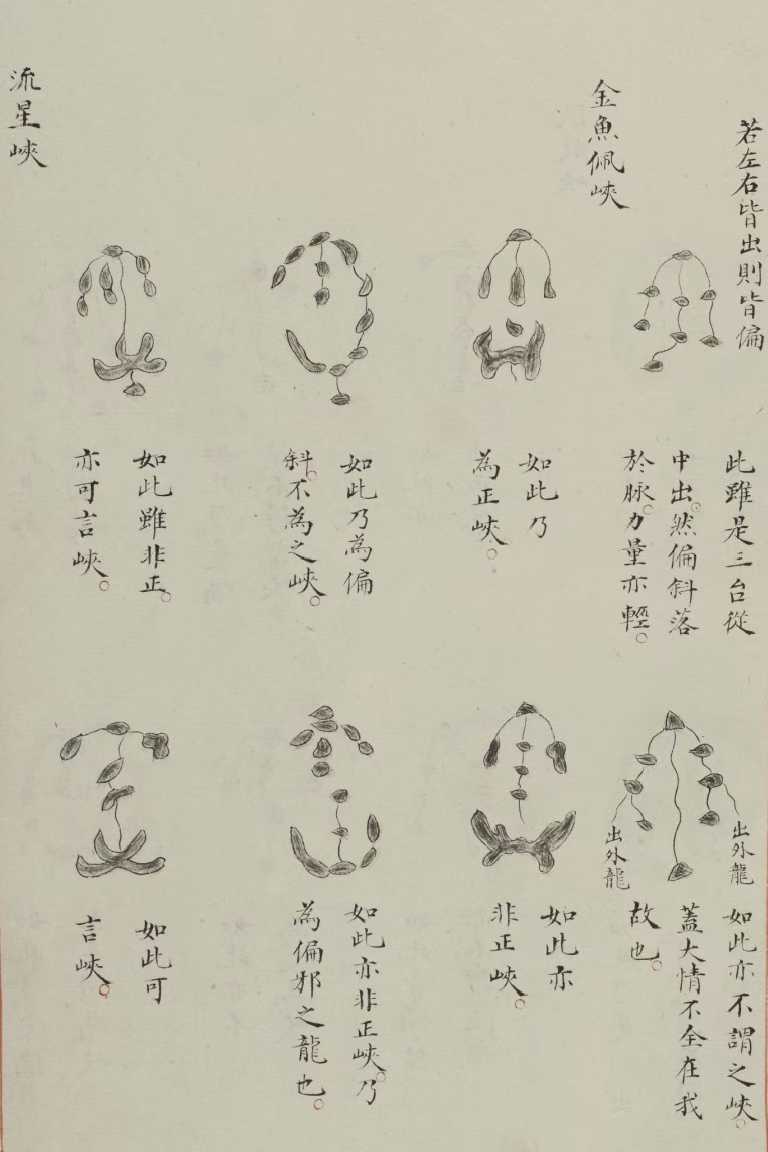 若左右皆出則皆偏
此雖是三台從
中出。然偏斜落
於脉。力量亦輕。
出外龍
出外龍
如此亦不謂之峽。
蓋大情不全在我
故也。
金魚佩峽
如此乃
為正峽。
如此亦
非正峽。
如此乃為偏
斜。不為之峽。
如此亦非正峽。乃
為偏邪之龍也。
如此雖非正。
亦可言峽。
如此可
言峽。
流星峽